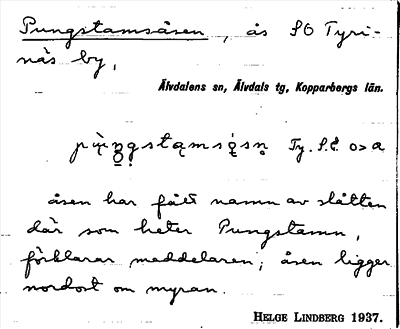 Pungstamsåsen, ås SO Tyri-
näs by,
Älvdalens sn, Älvdals tg, Kopparbergs län.
Ty.
åsen har fått namn av slåtten
där som heter Pungstamn,
förklarar meddelaren; åsen ligger
nordost om myran.
HELGE LINDBERG 1937.